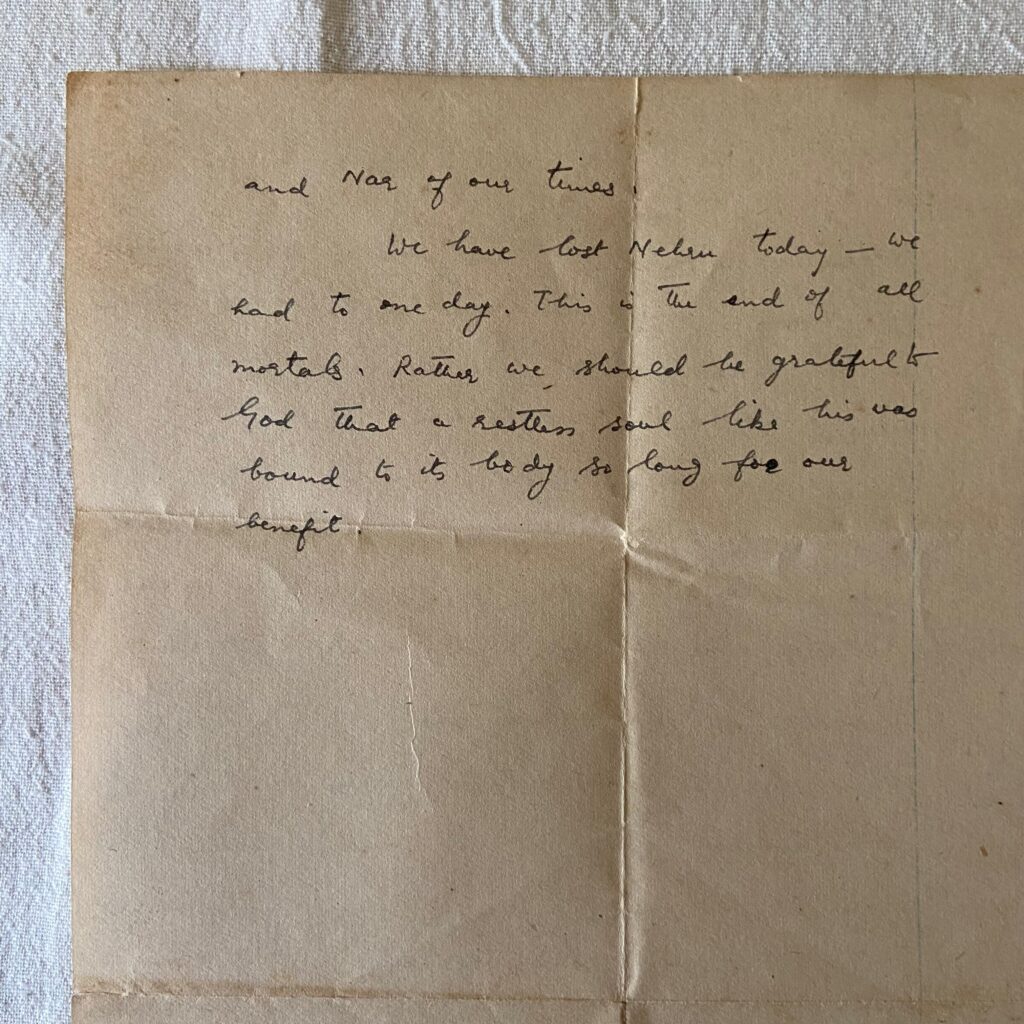 and Nar of our times.
We have lost Nehru today – we
had to one day. This is the end of all
mortals. Rather we should be grateful to
God that a restless soul like his was
bound to its body so long for our
benefit.